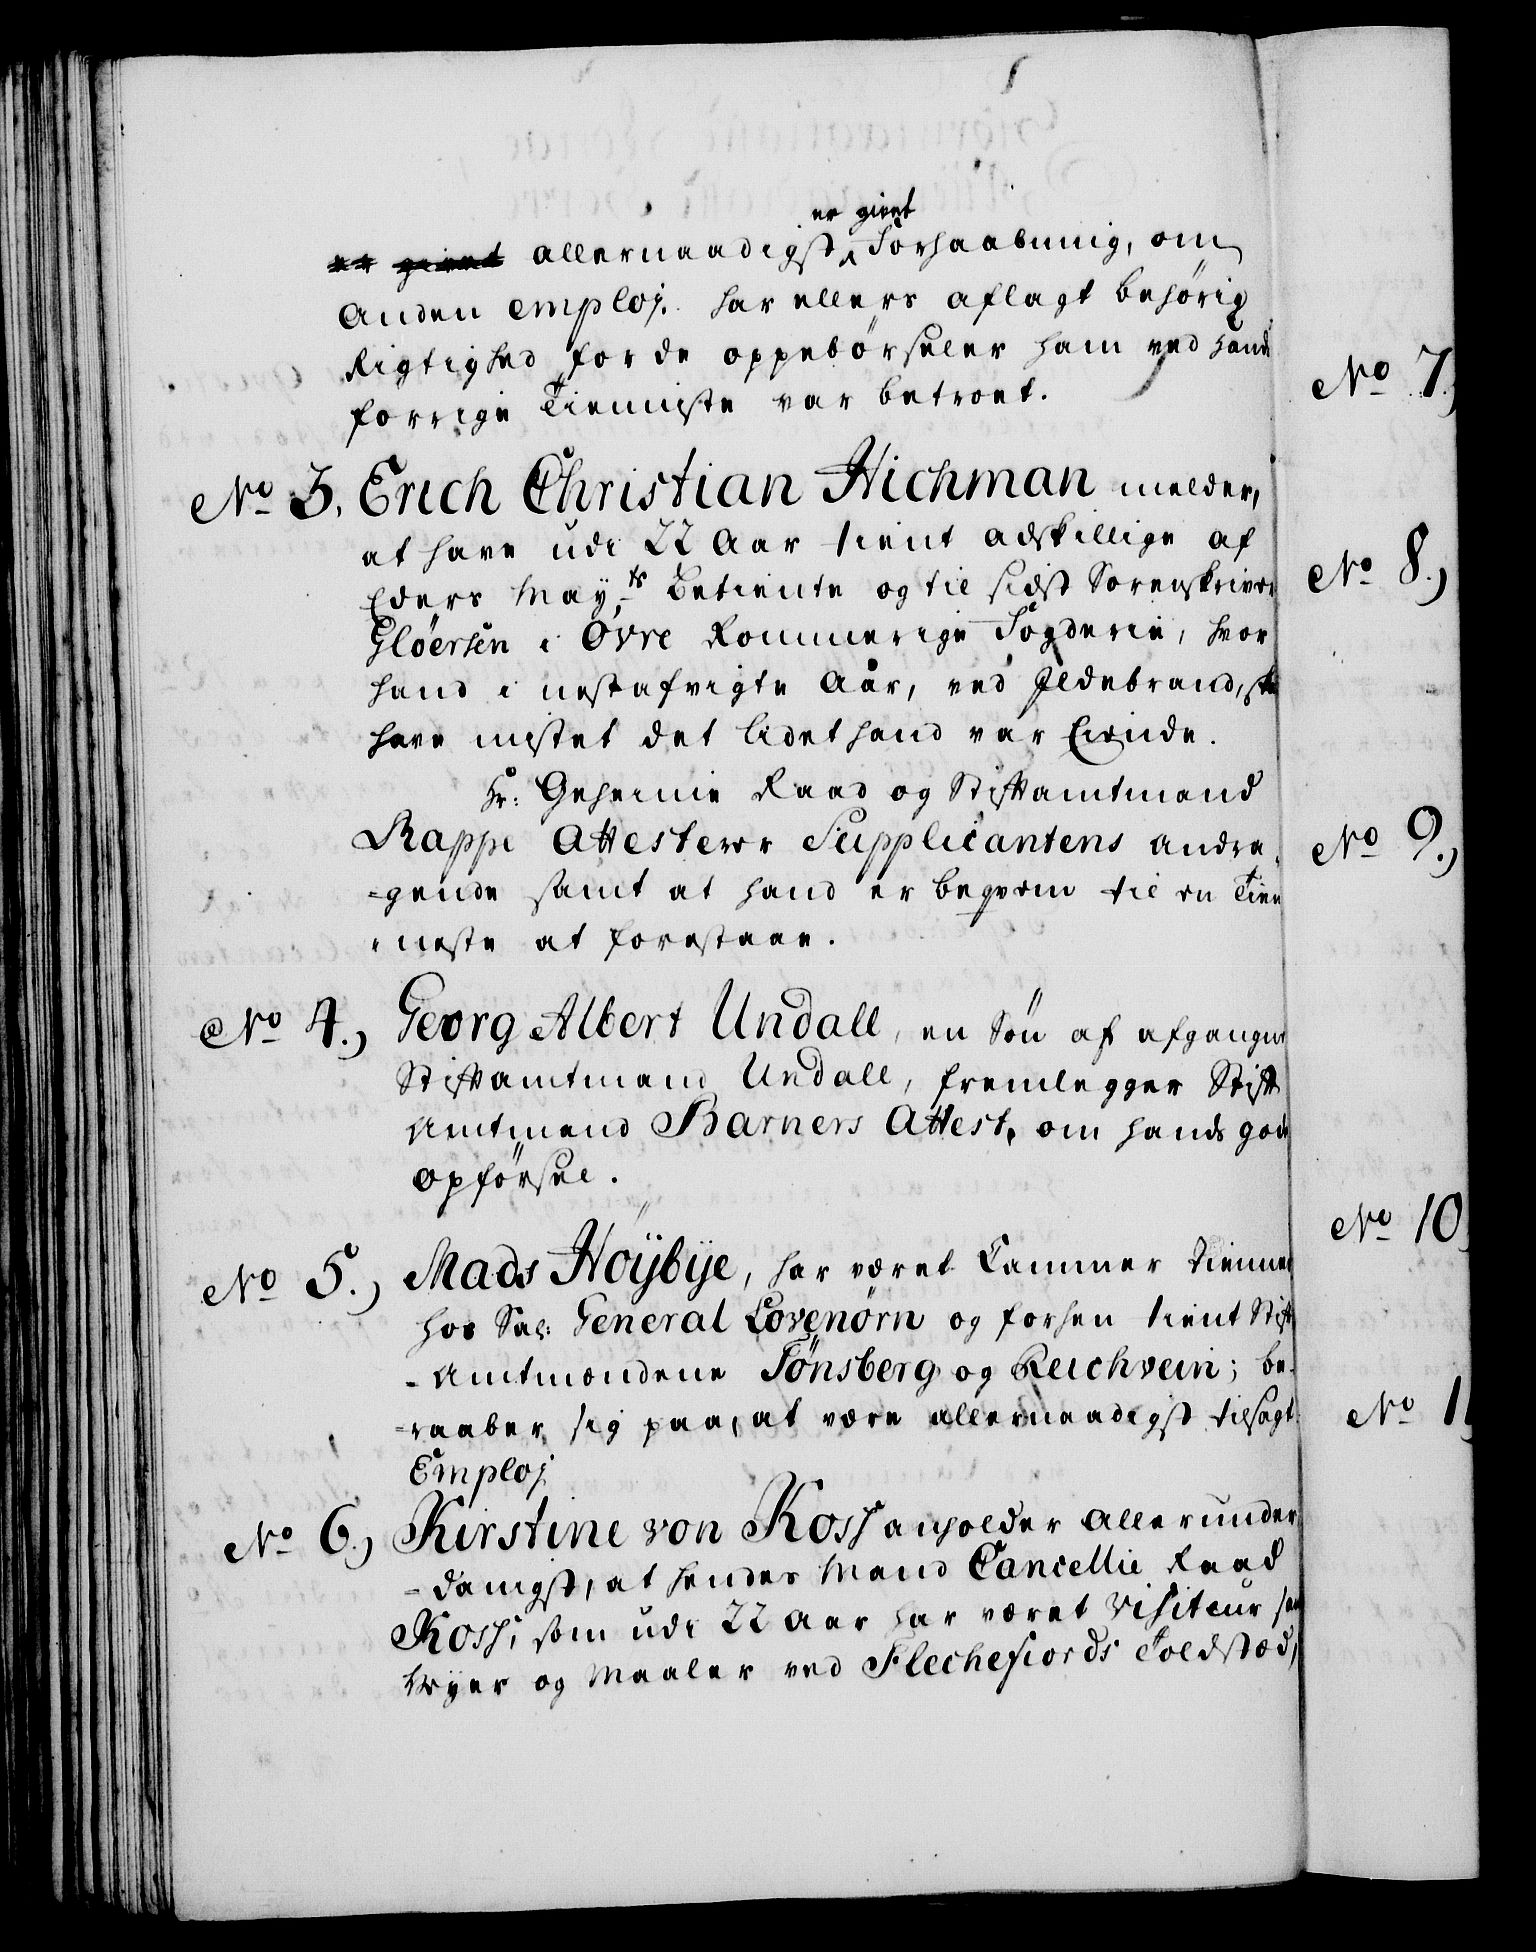 er givet
er givet allernaadigst Forhaabning, om
Anden emploj. har ellers aflagt behørig
Rigtighed for de oppebörseler ham ved hans
forrige Tienniste var betroet.
No 3. Erich Christian Hichman melder,
at have udi 22 Aar tient adskillige af
Eders Mayts Betiente og til sidst Sorenskriver
Gløersen i Øvre Rommerige Fogderie, hvor
hand i nestafvigte Aar, ved Ildebrand, skal
have mistet det lidet hand var Eiende.
Hr: Geheime Raad og Stiftamtmand
Rappe Attesterer Supplicantens andra,
=gende samt at hand er beqvem til en Tien
=neste at forestaae.
No 4.) Georg Albert Undall, en Søn af afgangne
Stiftamtmand Undall, fremlegger Stift
Amtmand Barners Attest, om hands gode
opførsel.
No 5.) Mads Höijbije, har været Cammer tienner
hos Sal: General Lövenörn og forhen tient Stift
-Amtmændene Tönsberg og Reichvein; be-
=raaber sig paa, at være allernaadigst tilsagt
Emploj
No 6.) Kirstine von Koss anholder Allerunder
-danigst, at hendes Mand Cancellie Raad
Koss, som udi 22 Aar har været Visiteur samt
Veyer og Maaler ved Flechefiords Toldstæd,
No 7.)
No 8.)
No 9.)
No 10
No 1